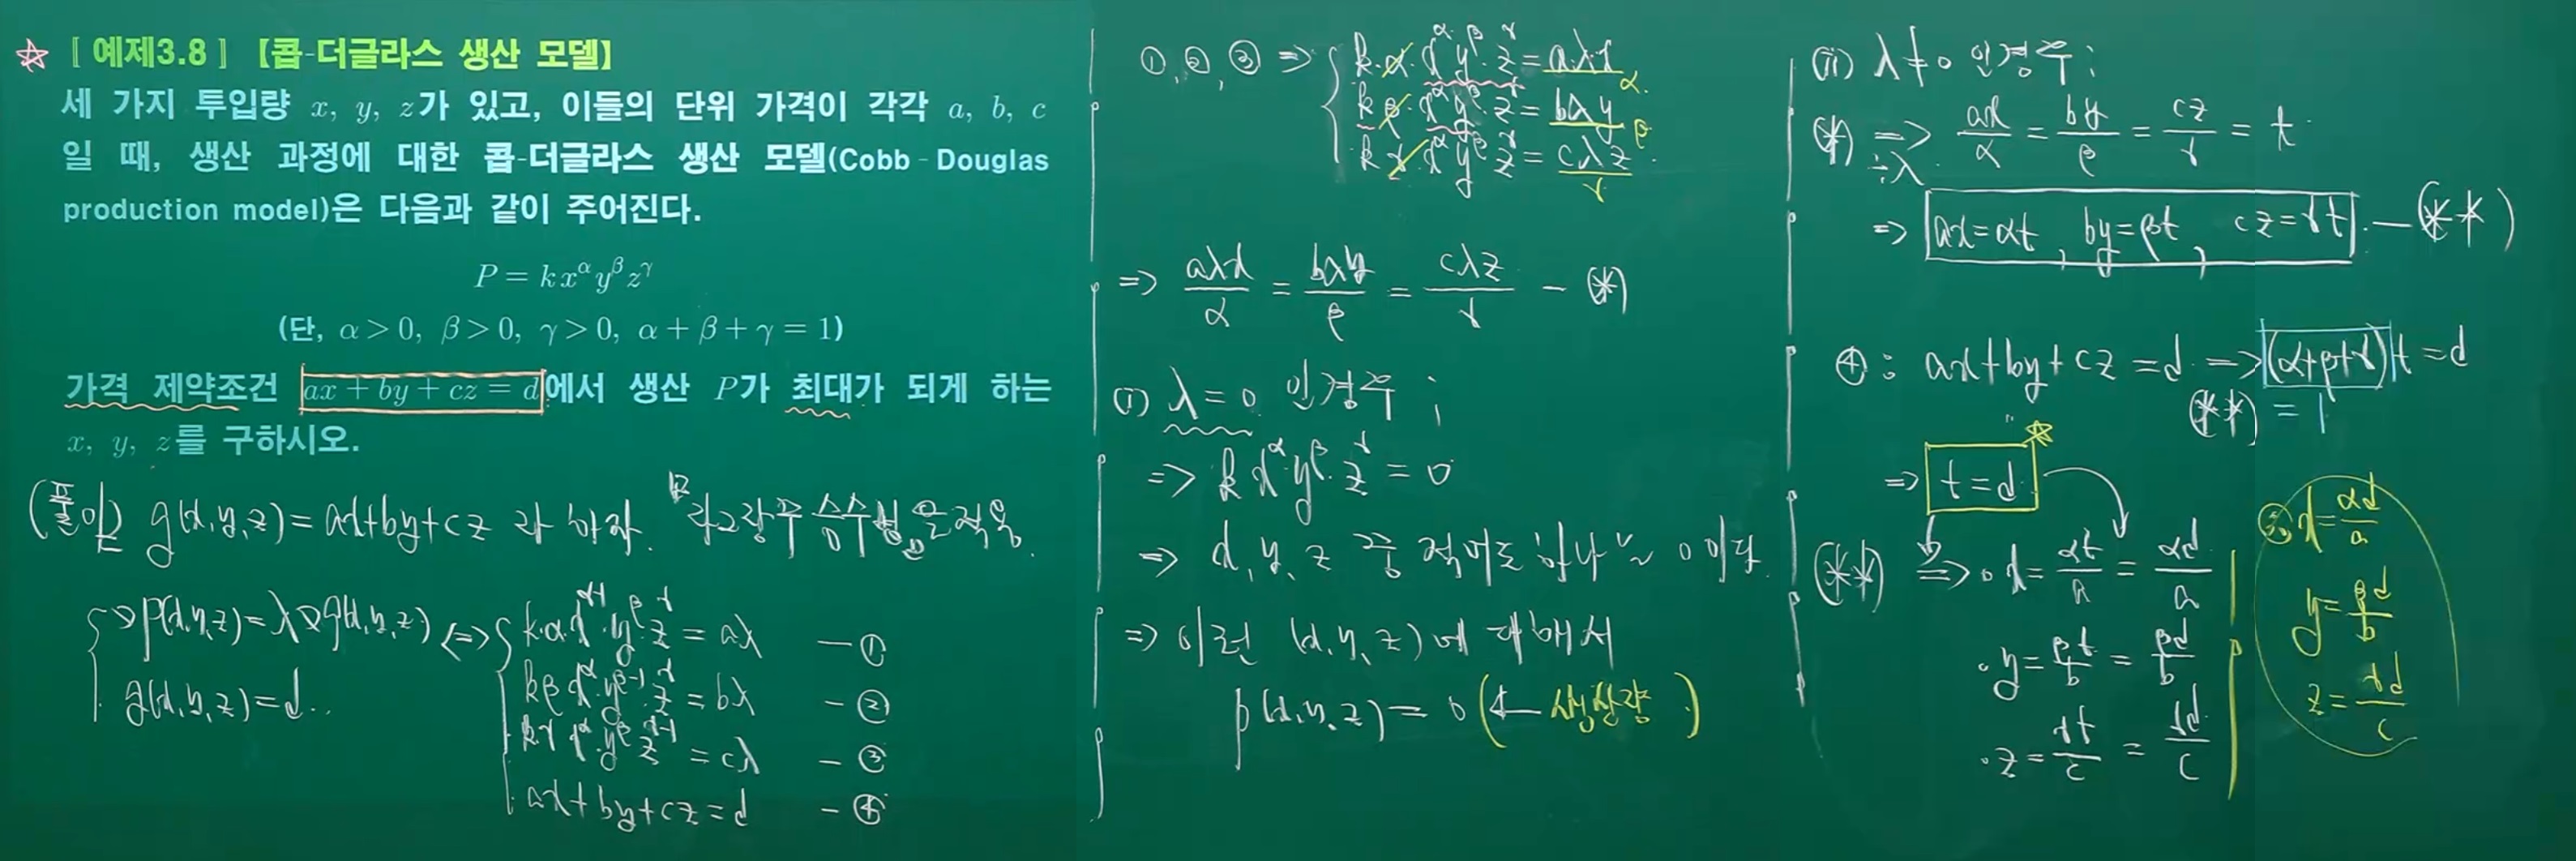 ☆ [ 예제3.8 ] 【콥-더글라스 생산 모델】
세 가지 투입량 x, y, z가 있고, 이들의 단위 가격이 각각 a, b, c
일 때, 생산 과정에 대한 콥-더글라스 생산 모델(Cobb - Douglas
production model)은 다음과 같이 주어진다.
P = kx^α y^β z^γ
(단, α > 0, β > 0, γ > 0, α + β + γ = 1)
가격 제약조건 ax + by + cz = d에서 생산 P가 최대가 되게 하는
x, y, z를 구하시오.
(풀이) g(x,y,z) = ax+by+cz 라 하자. 라그랑주 승수법을 적용
{ ∇P(x,y,z) = λ∇g(x,y,z) ⟺ { k·α·x^(α-1)·y^β·z^γ = aλ —①
g(x,y,z) = d..
kβ x^α·y^(β-1)·z^γ = bλ —②
kγ x^α·y^β·z^(γ-1) = cλ —③
ax+by+cz = d —④
①, ②, ③ ⇒ { k·α·x^α y^β·z^γ = aλx
α
k·β·x^α y^β·z^γ = bλy
β
k·γ·x^α y^β z^γ = cλz
γ
⇒ aλx/α = bλy/β = cλz/γ — (*)
(i) λ = 0 인경우 ;
⇒ k x^α y^β·z^γ = 0
⇒ x, y, z 중 적어도 하나는 0 이다.
⇒ 이런 (x,y,z)에 대해서
P(x,y,z) = 0 (← 생산량)
(ii) λ ≠ 0 인경우 ;
(*) ⇒ ÷λ ax/α = by/β = cz/γ = t
⇒ ax = αt, by = βt, cz = γt — (**)
④ : ax+by+cz = d ⇒ (α+β+γ)t = d
(**) = 1
⇒ t = d ☆
(**) ⇒ ∘ x = αt/a = αd/a
∘ y = βt/b = βd/b
∘ z = γt/c = γd/c
∴ x = αd/a
y = βd/b
z = γd/c